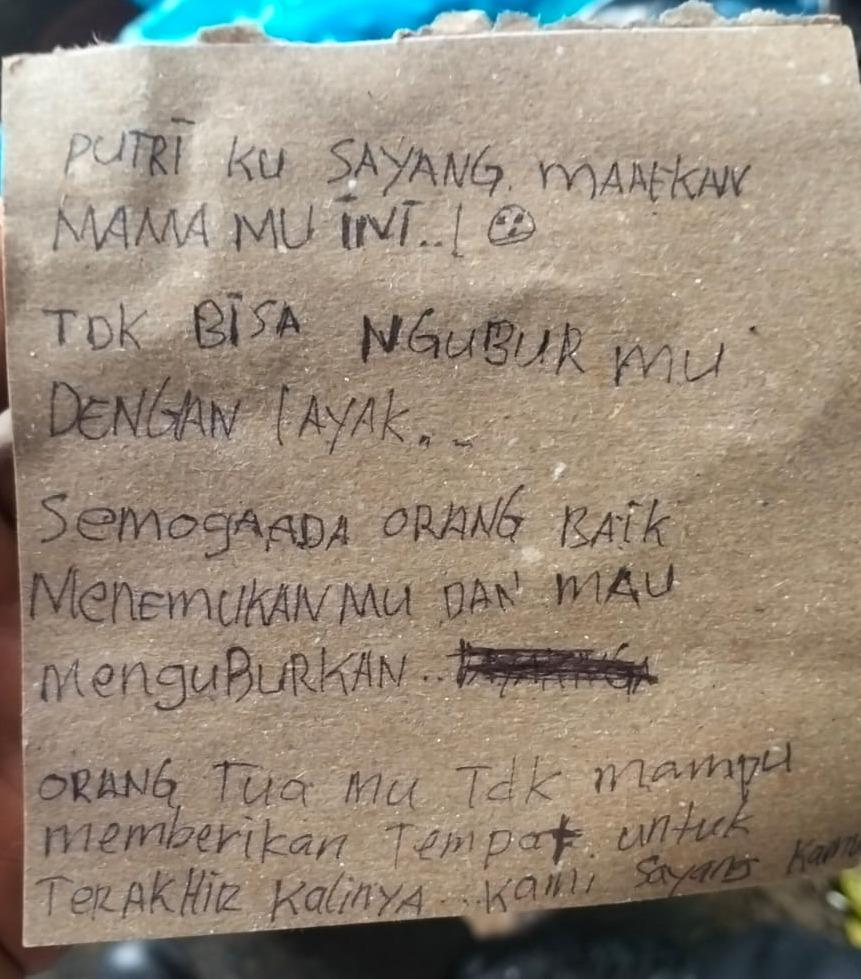 PUTRI KU SAYANG. MAAFKAN
MAMA MU INI..!
TDK BISA NGUBUR MU
DENGAN LAYAK..
SEMOGA ADA ORANG BAIK
MENEMUKAN MU DAN MAU
MENGUBURKAN..
ORANG TUA MU Tdk mampu
memberikan Tempat untuk
TERAKHIR KALINYA...KAMI Sayang Kamu